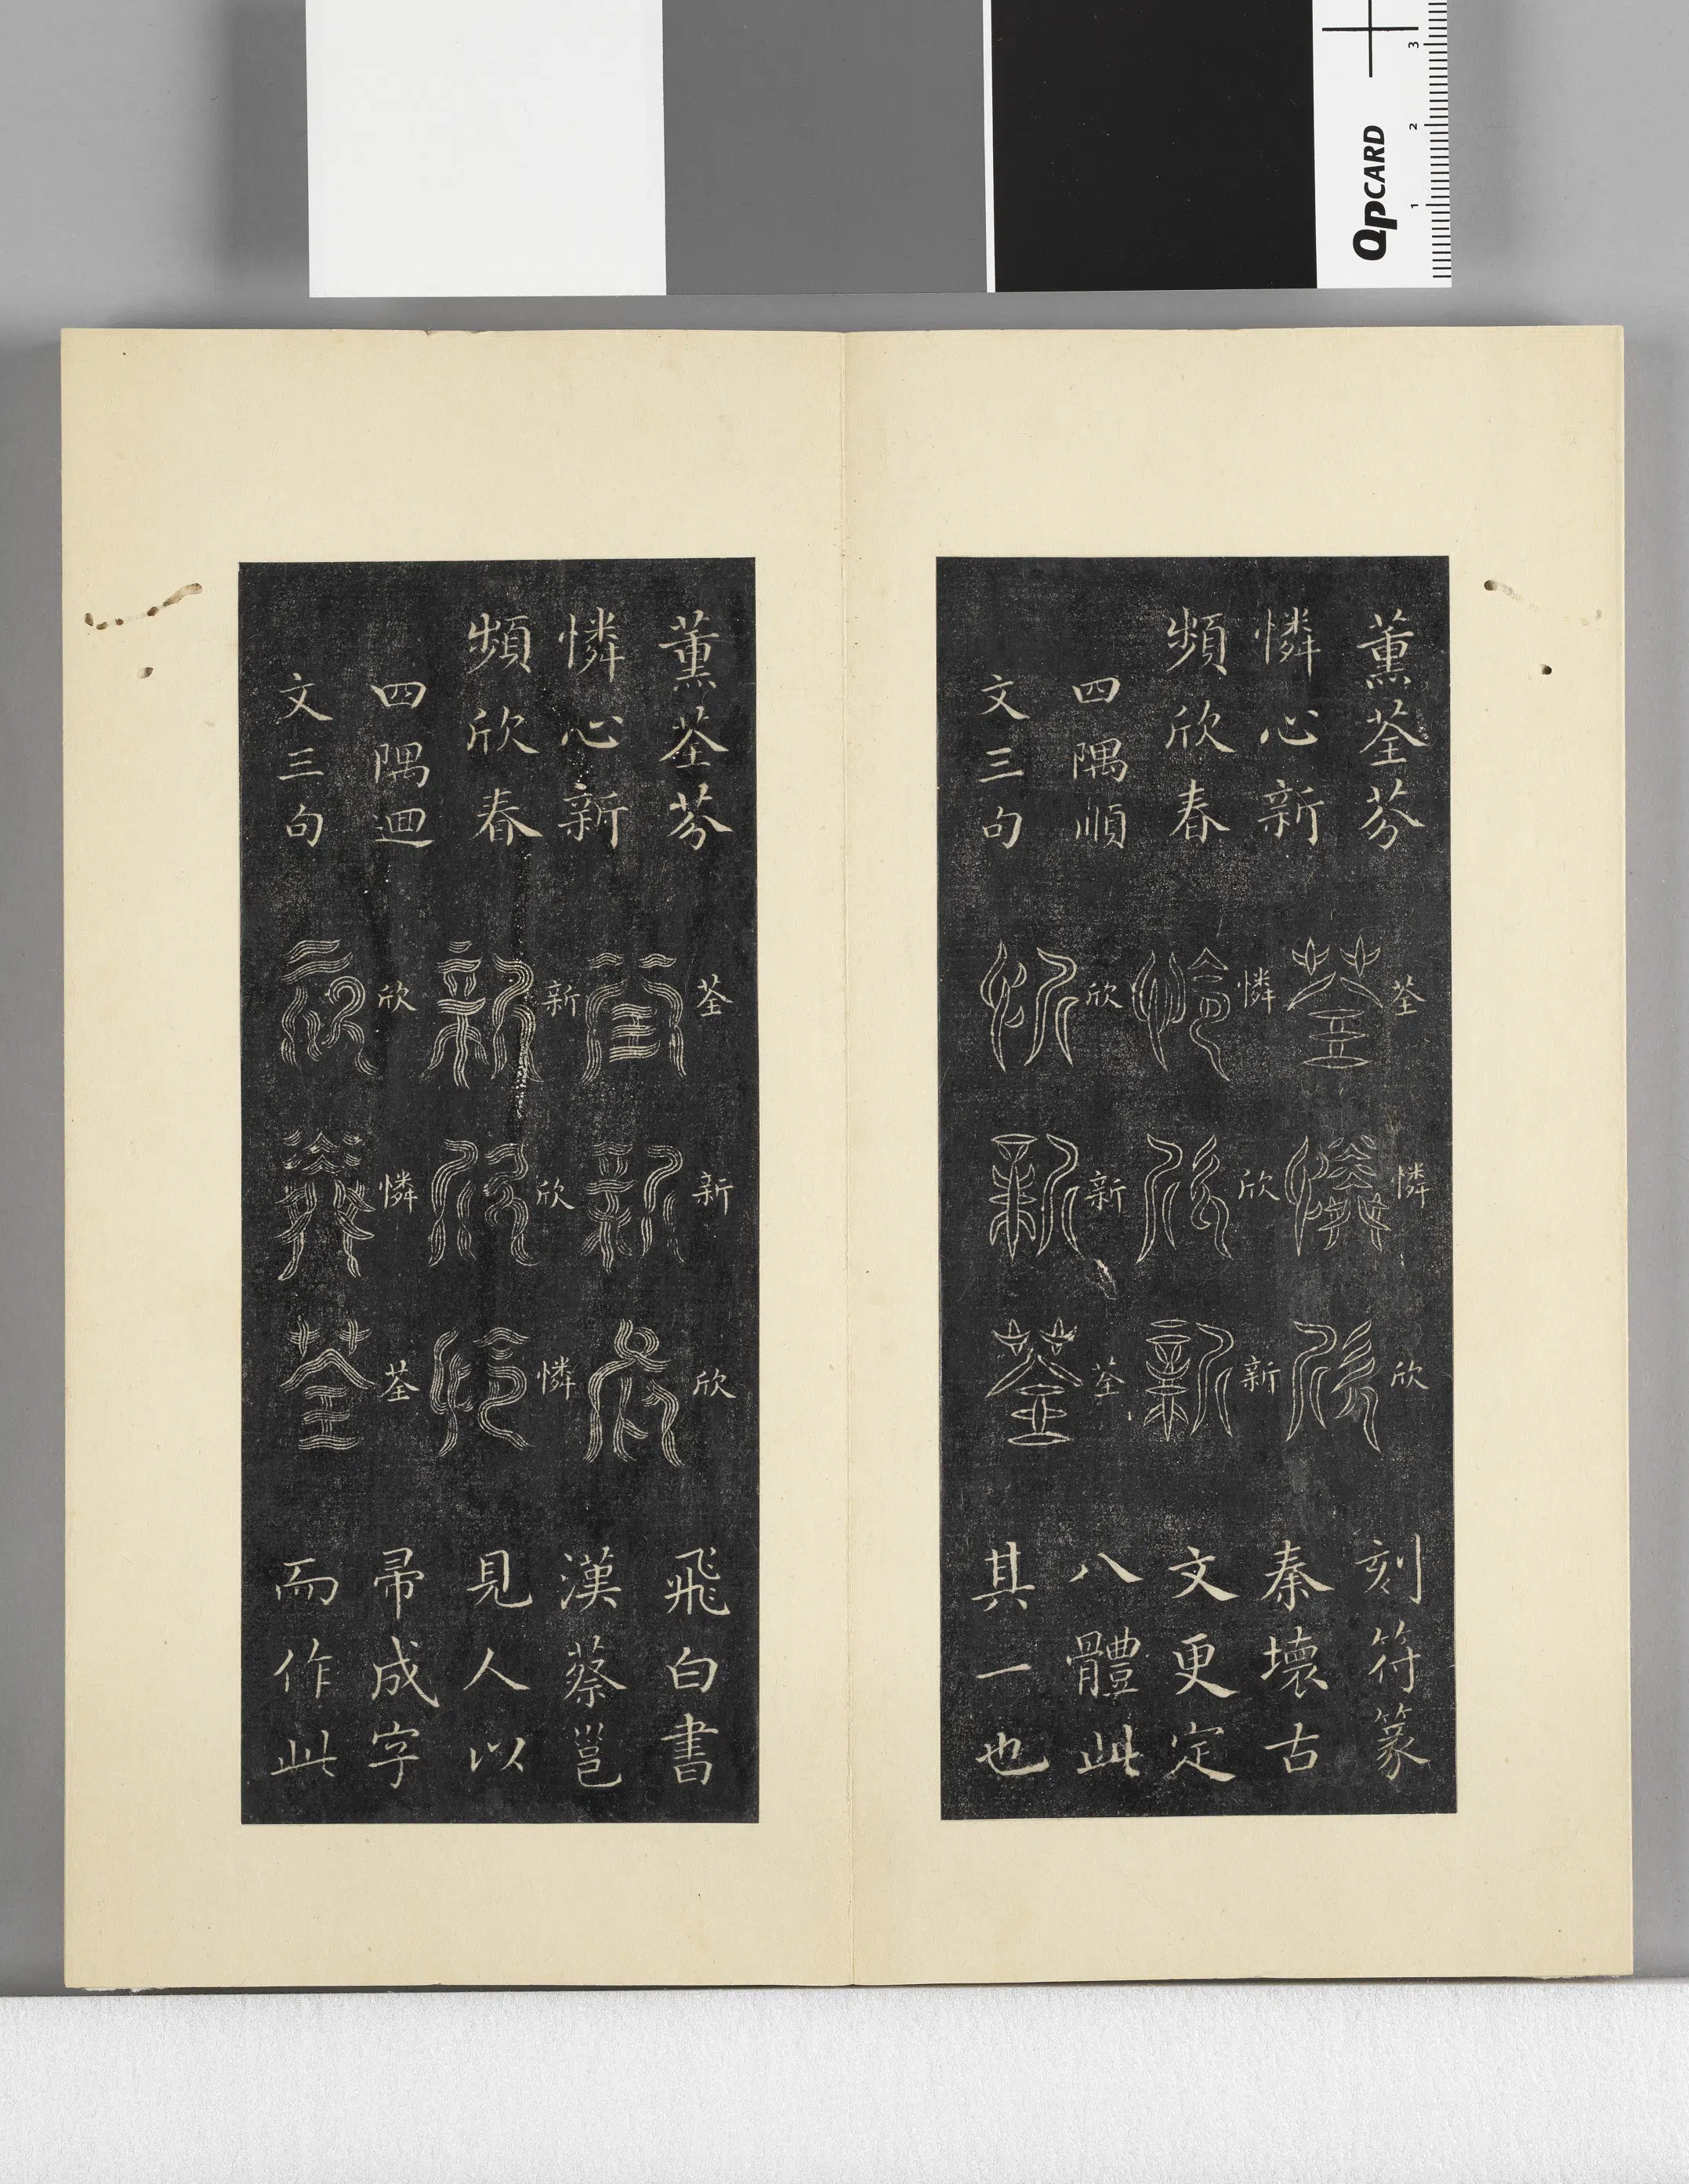 QPCARD
1 2 3
薰荃芬
憐心新
頻欣春
四隅順
文三句
荃憐欣
憐欣新
欣新荃
刻符篆
秦壞古
文更定
八體此
其一也
薰荃芬
憐心新
頻欣春
四隅迴
文三句
荃新欣
新欣憐
欣憐荃
飛白書
漢蔡邕
見人以
帚成字
而作此